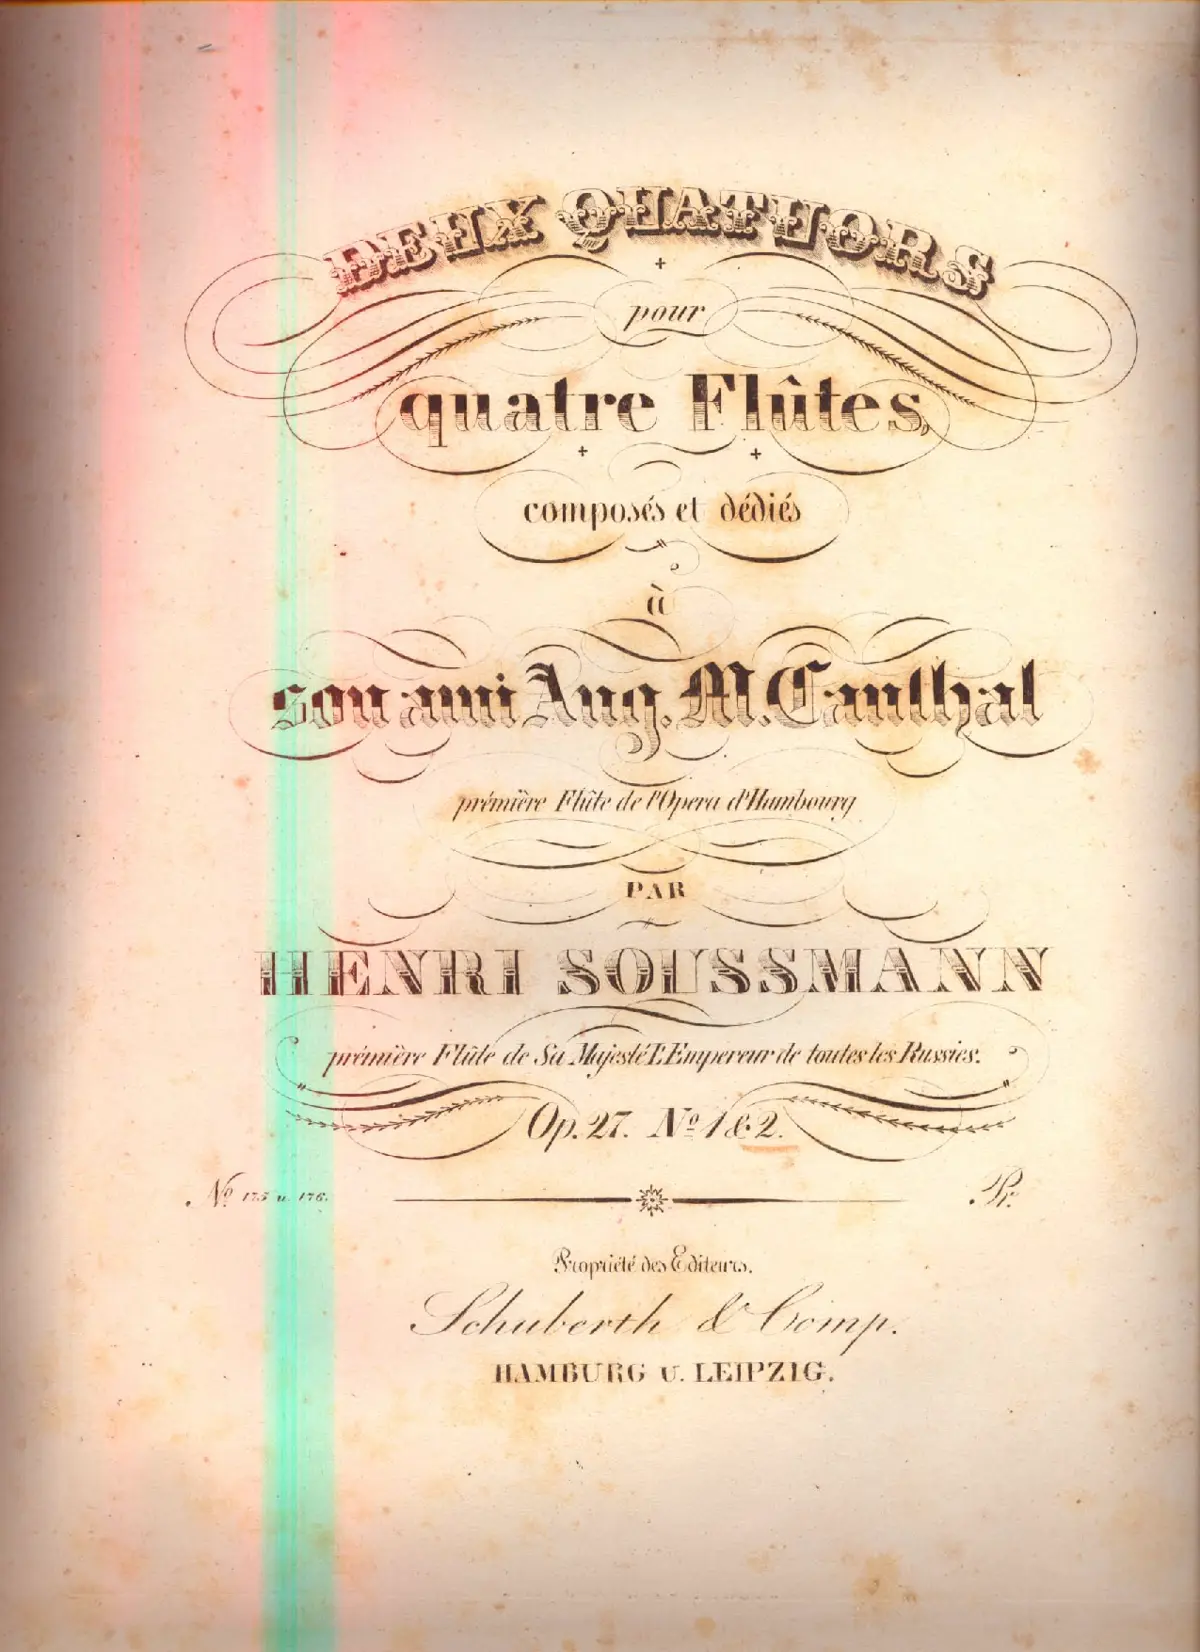 DEUX QUATUORS
pour
quatre Flûtes,
composés et dédiés
à
son ami Aug. M. Canthal
prémière Flûte de l'Opera d'Hambourg
PAR
HENRI SOUSSMANN
prémière Flûte de Sa Majesté L'Empereur de toutes les Russies.
Op. 27. No. 1 & 2.
No. 175 u. 176. Pr.
Propriété des Editeurs.
Schuberth & Comp.
HAMBURG U. LEIPZIG.